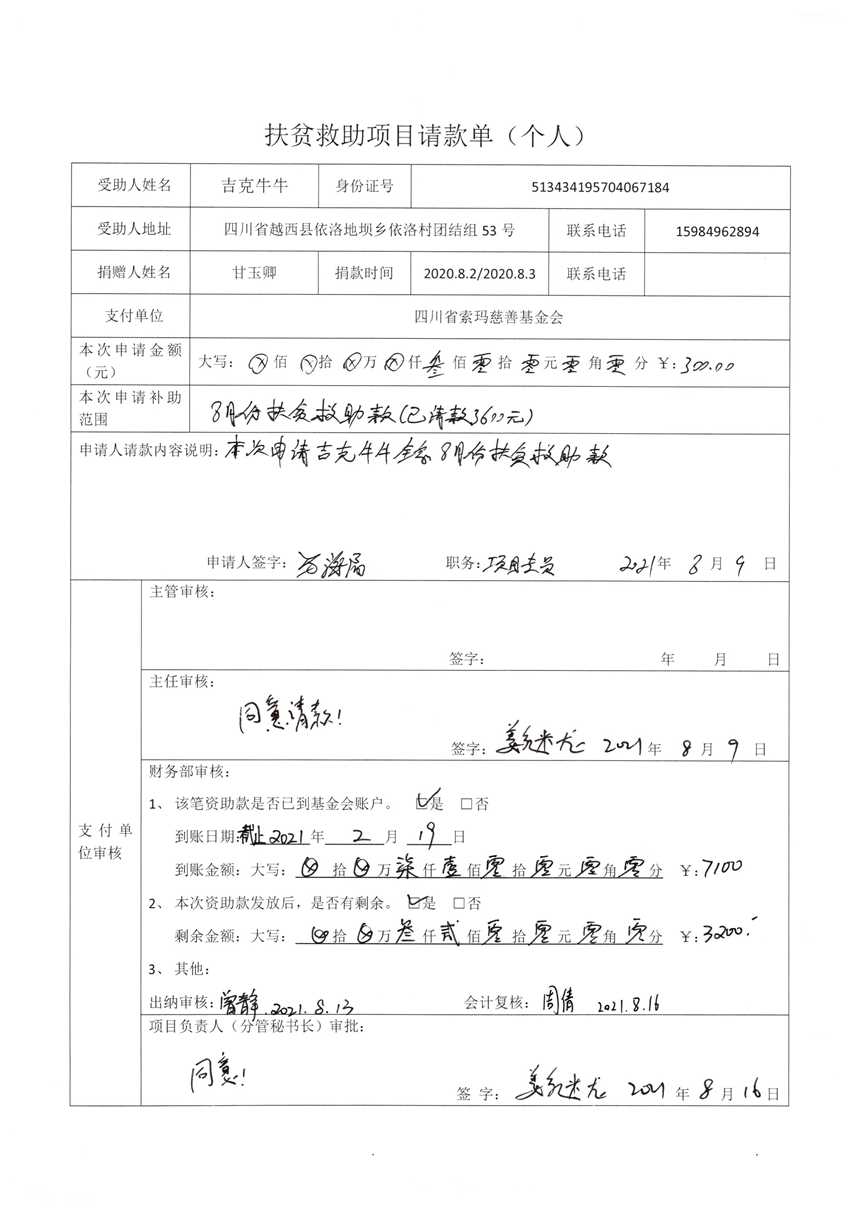 扶贫救助项目请款单（个人）
受助人姓名 吉克牛牛 身份证号 513434195704067184
受助人地址 四川省越西县依洛地坝乡依洛村团结组 53 号 联系电话 15984962894
捐赠人姓名 甘玉卿 捐款时间 2020.8.2/2020.8.3 联系电话
支付单位 四川省索玛慈善基金会
本次申请金额（元） 大写：ⓧ佰 ⓧ拾 ⓧ万 ⓧ仟叁佰零拾零元零角零分 ￥:300.00
本次申请补助范围 8月份扶贫救助款(已请款3600元)
申请人请款内容说明：本次申请吉克牛牛全家8月份扶贫救助款
申请人签字： 职务：项目专员 2021年 8月 9日
支付单位审核
主管审核：
签字： 年 月 日
主任审核：
同意请款！
签字： 2021年 8月 9日
财务部审核：
1、 该笔资助款是否已到基金会账户。 ☑是 □否
到账日期：截止2021年 2月 19日
到账金额：大写：ⓧ拾ⓧ万柒仟壹佰零拾零元零角零分 ￥:7100
2、 本次资助款发放后，是否有剩余。 ☑是 □否
剩余金额：大写：ⓧ拾ⓧ万叁仟贰佰零拾零元零角零分 ￥:3200.-
3、 其他：
出纳审核：曾静 2021.8.13 会计复核：周倩 2021.8.16
项目负责人（分管秘书长）审批：
同意！
签 字： 2021年 8月 16日